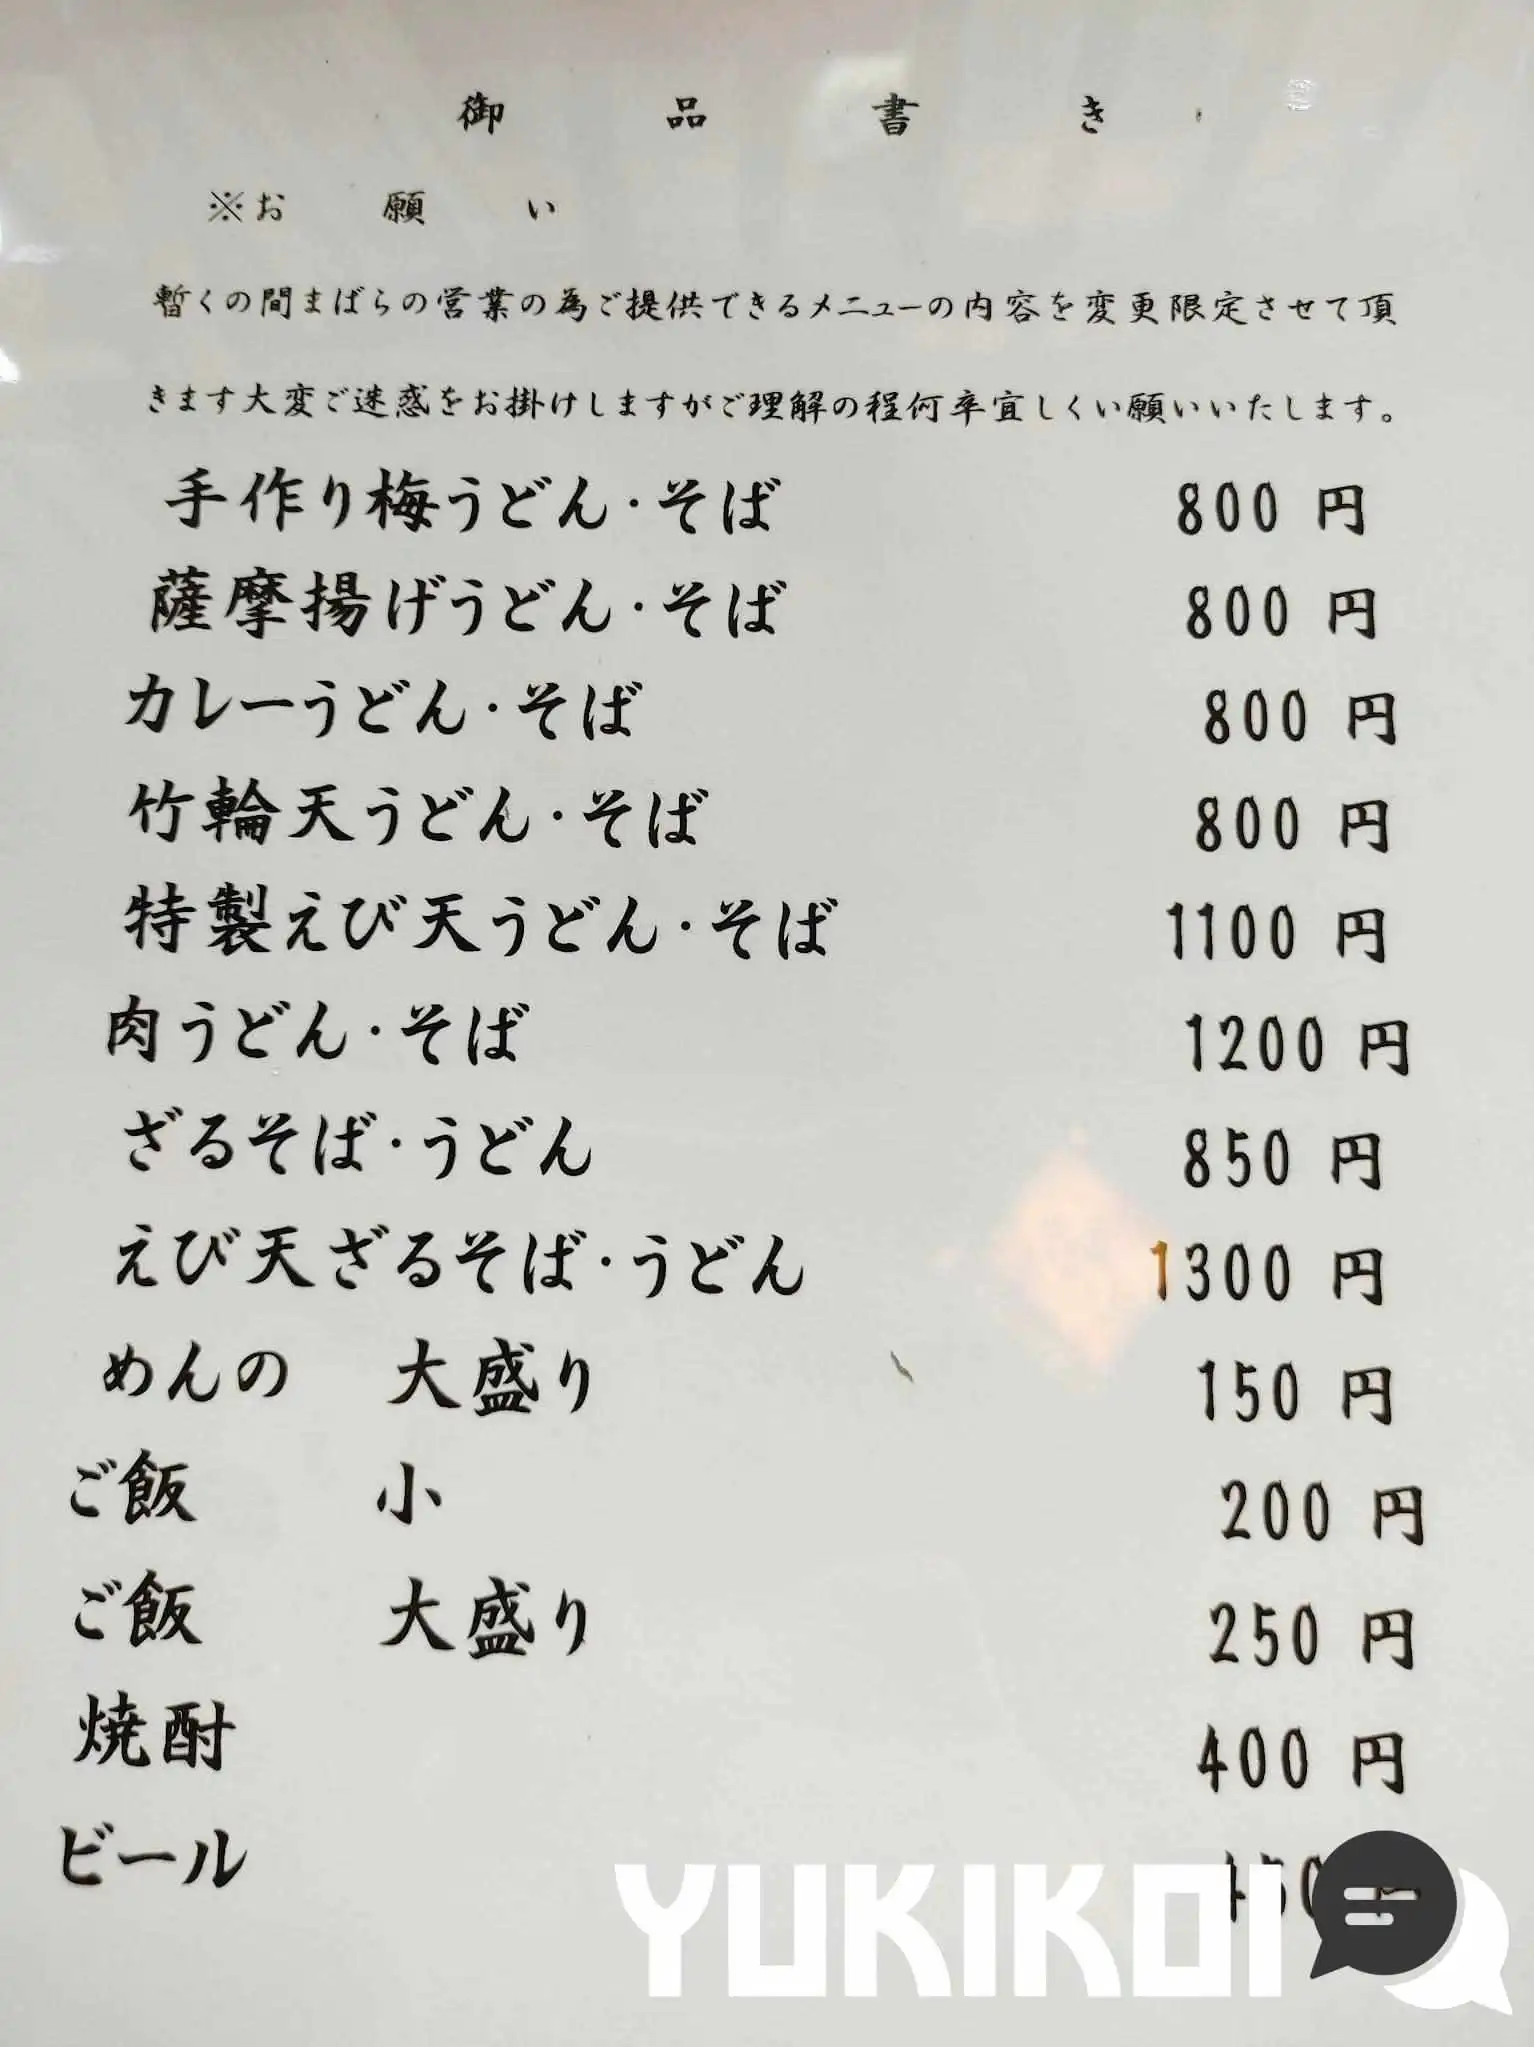 御品書き
※お願い
暫くの間まばらの営業の為ご提供できるメニューの内容を変更限定させて頂
きます大変ご迷惑をお掛けしますがご理解の程何卒宜しくい願いいたします。
手作り梅うどん・そば 800 円
薩摩揚げうどん・そば 800 円
カレーうどん・そば 800 円
竹輪天うどん・そば 800 円
特製えび天うどん・そば 1100 円
肉うどん・そば 1200 円
ざるそば・うどん 850 円
えび天ざるそば・うどん 1300 円
めんの 大盛り 150 円
ご飯 小 200 円
ご飯 大盛り 250 円
焼酎 400 円
ビール 450 円
YUKIKOI